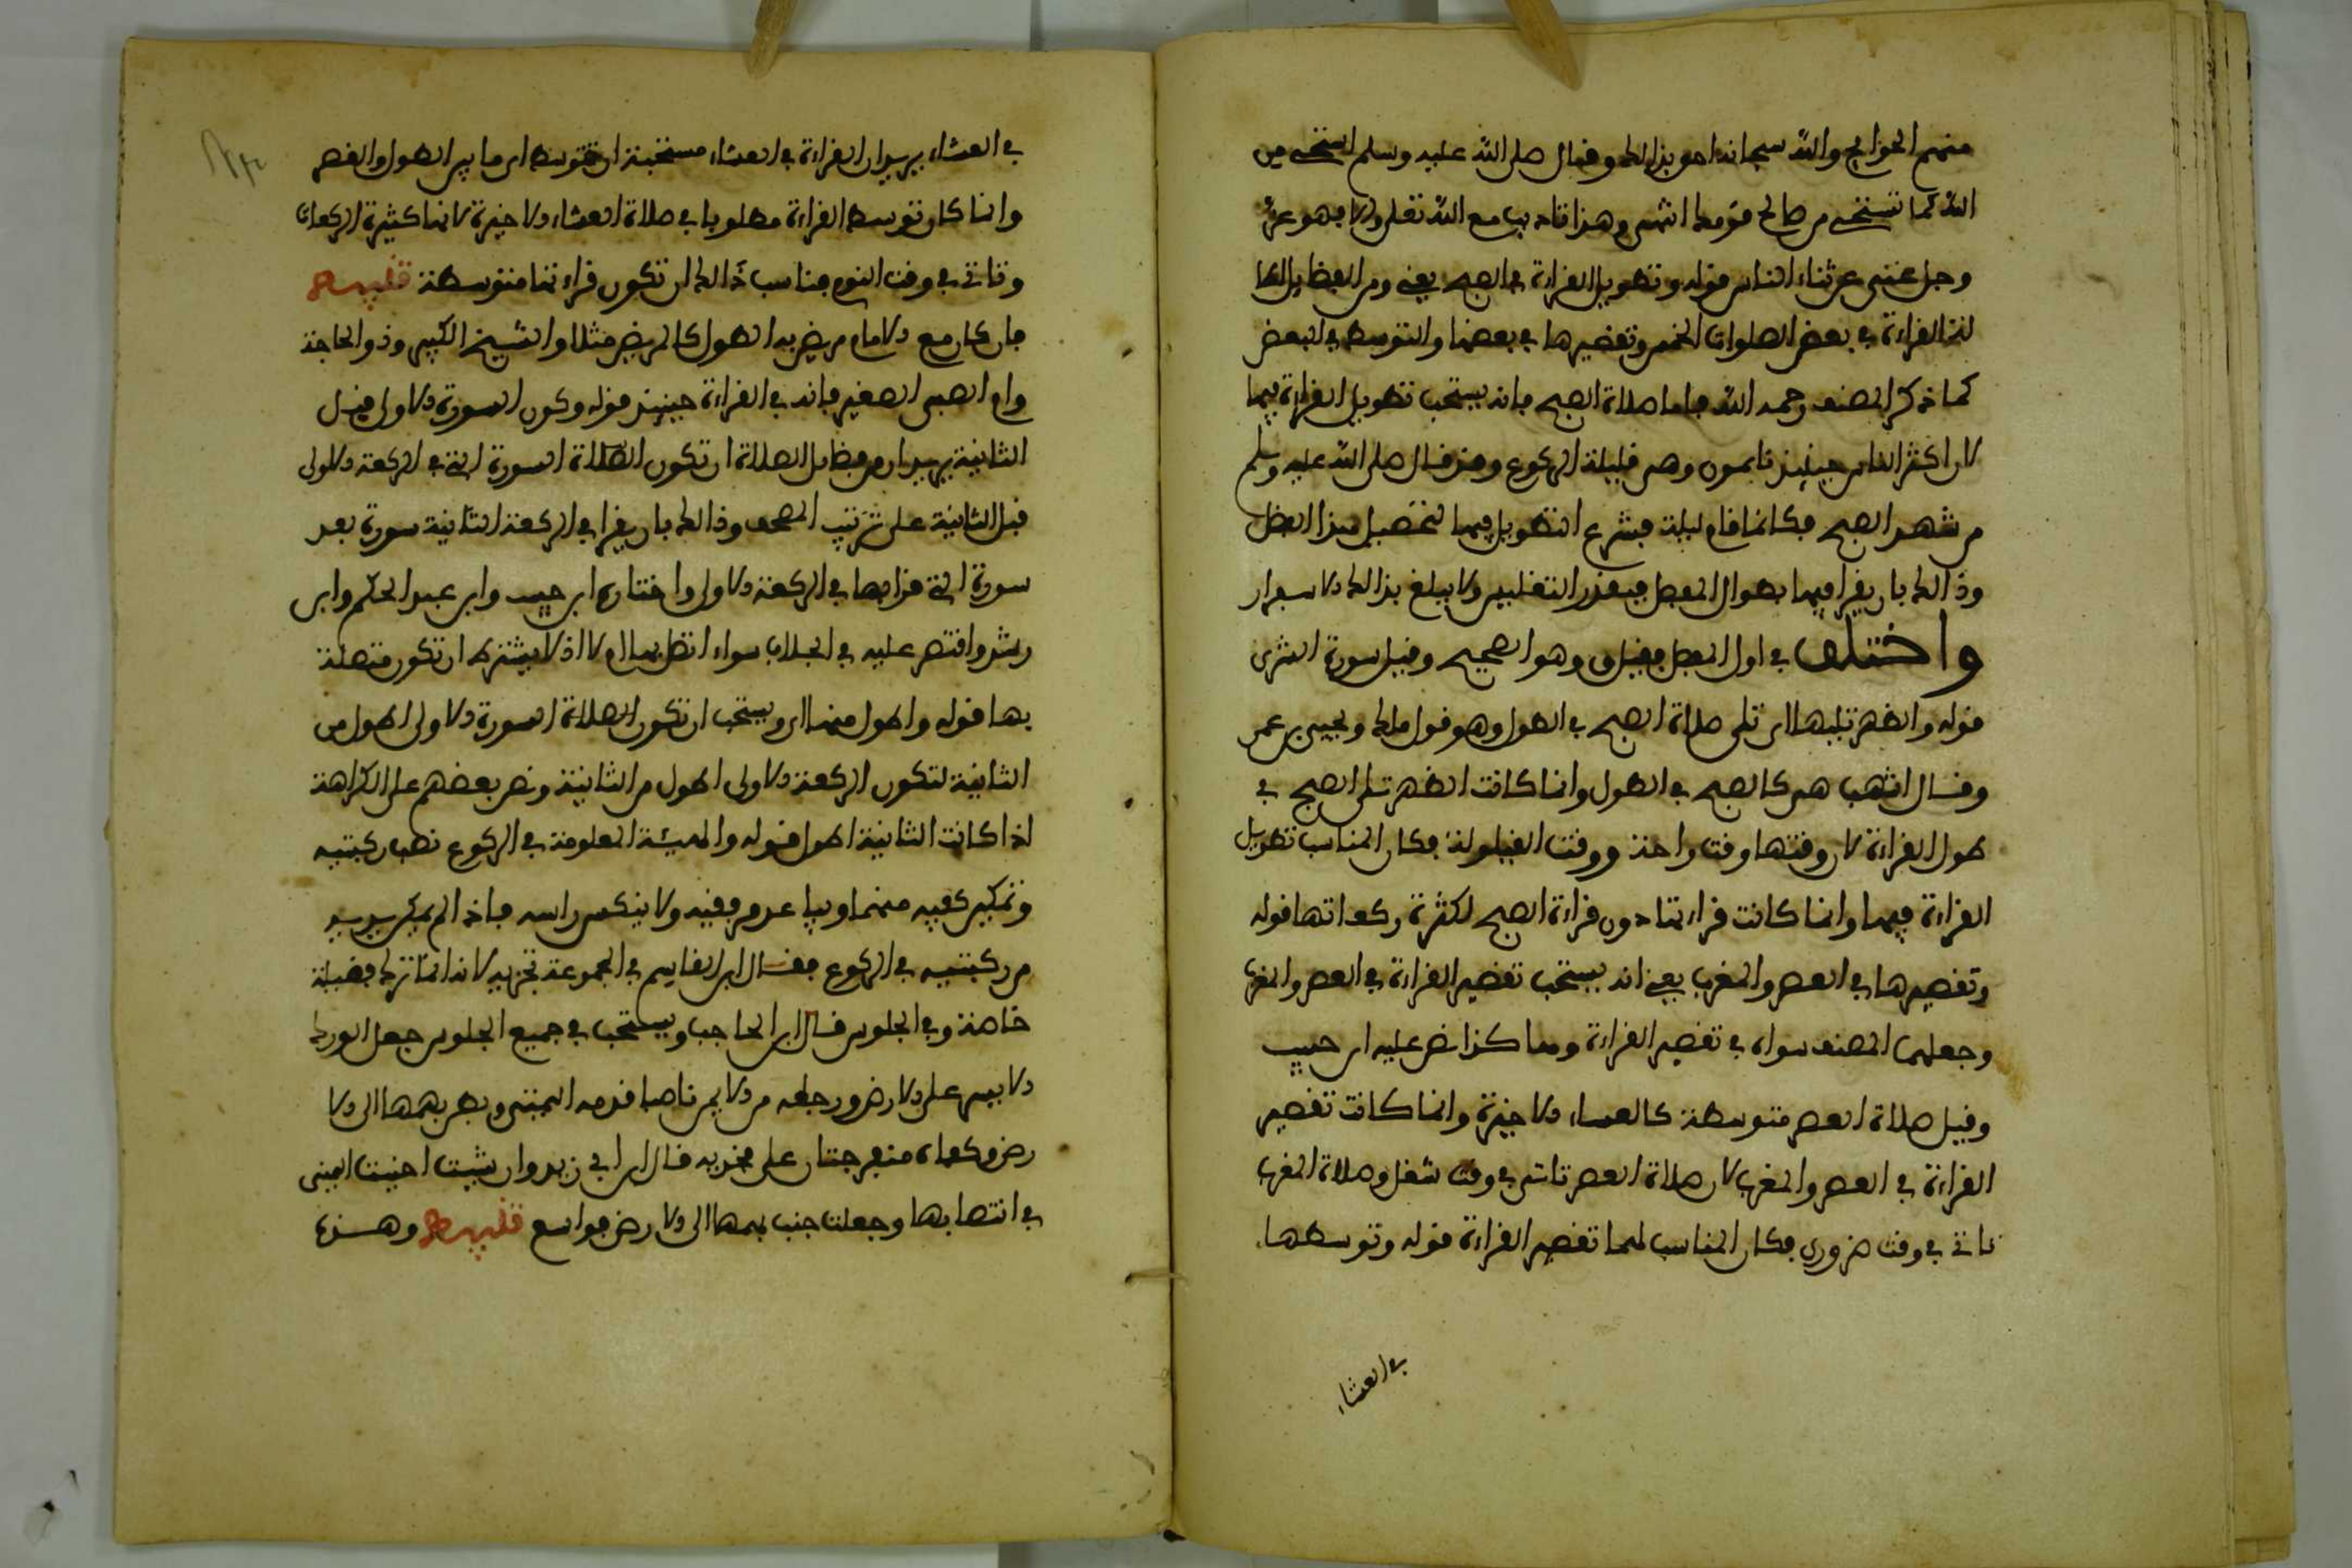 منهم الحوائج والله سبحانه احق بذالك وقال صلى الله عليه وسلم استحى من
الله كما تستحى من صالح قومك انتهى وهذا تادب مع الله تعلى والا فهو عز
وجل غنى عن ثناء الناس قوله وتطويل القراءة في الصبح يعنى ومن الفضايل اطا
لة القراءة في بعض الصلوات الخمس وتقصيرها في بعضها والتوسط في البعض
كما ذكر المصنف رحمه الله فاما صلاة الصبح فانه يستحب تطويل القراءة فيها
لان اكثر الناس حينئذ نايمون وهي قليلة الركوع وقد قال صلى الله عليه وسلم
من شهد الصبح فكانما قام ليلة فشرع التطويل فيها لتحصيل هذا الفضل
وذالك بان يقرا فيها بطوال المفصل فبقدر التغليس ولا يبلغ بذالك الاسفار
واختلف في اول المفصل فقيل ق وهو الصحيح وقيل سورة الشورى
قوله والظهر تليها اى تلى صلاة الصبح في الطول وهو قول ملك ويحيى بن عمر
وقال اشهب هى كالصبح في الطول وانما كانت الظهر تلى الصبح في
طول القراءة لان وقتها وقت راحة ووقت القيلولة فكان المناسب تطويل
القراءة فيها وانما كانت قراءتها دون قراءة الصبح لكثرة ركعاتها قوله
وتقصيرها في العصر والمغرب يعنى انه يستحب تقصير القراءة في العصر والمغرب
وجعلهما المصنف سواء في تقصير القراءة وهاكذا نص عليه ابن حبيب
وقيل صلاة العصر متوسطة كالعشاء الاخيرة وانما كانت تقصير
القراءة في العصر والمغرب لان صلاة العصر تاتى في وقت شغل وصلاة المغرب
تاتى في وقت ضرورى فكان المناسب لهما تقصير القراءة قوله وتوسطها
في العشاء
في العشاء يريد ان القراءة في العشاء مستحبة ان تتوسط اى ما بين الطول والقصر
وانما كان توسط القراءة مطلوبا في صلاة العشاء الاخيرة لانها كثيرة الركعات
وتاتى في وقت النوم فناسب ذالك ان تكون قراءتها متوسطة تنبيه
فان كان مع الامام من يضر به الطول كالمريض مثلا والشيخ الكبير وذو الحاجة
وام الصبى الصغير فانه في القراءة حينئذ قوله وكون السورة الاولى قبل
الثانية يريد ان من فضايل الصلاة ان تكون الصلاة السورة التى في الركعة الاولى
قبل الثانية على ترتيب المصحف وذالك بان يقرا في الركعة الثانية سورة بعد
سورة التى قرا بها في الركعة الاولى واختاره ابن حبيب وابن عبد الحكم وابن
رشد واقتصر عليه في الجلاب سواء اتصل بها ام لا اذ لا يشترط ان تكون متصلة
بها قوله واطول منها اى ويستحب ان تكون الصلاة السورة الاولى اطول من
الثانية لتكون الركعة الاولى اطول من الثانية ونص بعضهم على الكراهة
اذا كانت الثانية اطول قوله والهيئة المعلومة في الركوع نصب ركبتيه
وتمكين كفيه منهما ويباعد مرفقيه ولا ينكس راسه فاذا لم يمكن يديه
من ركبتيه في الركوع فقال ابن القاسم في المجموعة تجزيه لانه انما ترك فضيلة
خاصة وفي الجلوس قال ابن الحاجب ويستحب في جميع الجلوس جعل الورك
الايسر على الارض ورجله من الايمن ناصبا قدمه اليمنى وبطن بهمها الى الا
رض وكفاه منفرجتان على فخذيه قال ابن ابى زيد وان شيت احنيت اليمنى
في انتصابها وجعلت جنب بهمها الى الارض فواسع تنبيه وهذه